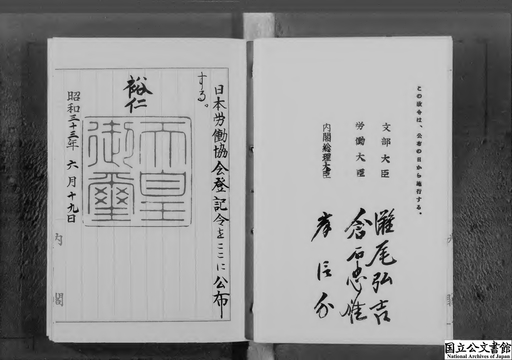 この政令は、公布の日から施行する。
文部大臣 灘尾弘吉
労働大臣 倉石忠雄
内閣総理大臣 岸信介
日本労働協会登記令をここに公布
する。
裕仁
天皇
御璽
昭和三十三年六月十九日
内閣
国立公文書館
National Archives of Japan